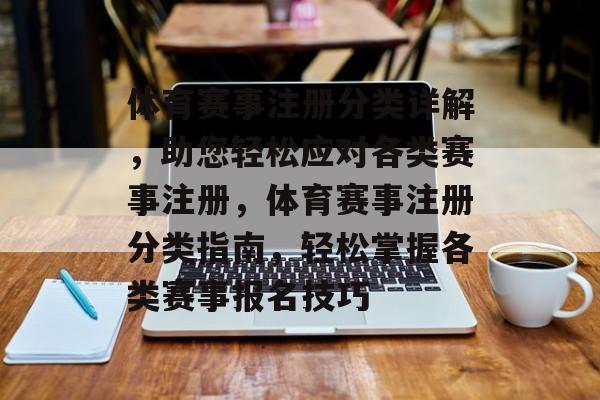 体育赛事注册分类详解
，助您轻松应对各类赛
事注册，体育赛事注册
分类指南，轻松掌握各
类赛事报名技巧